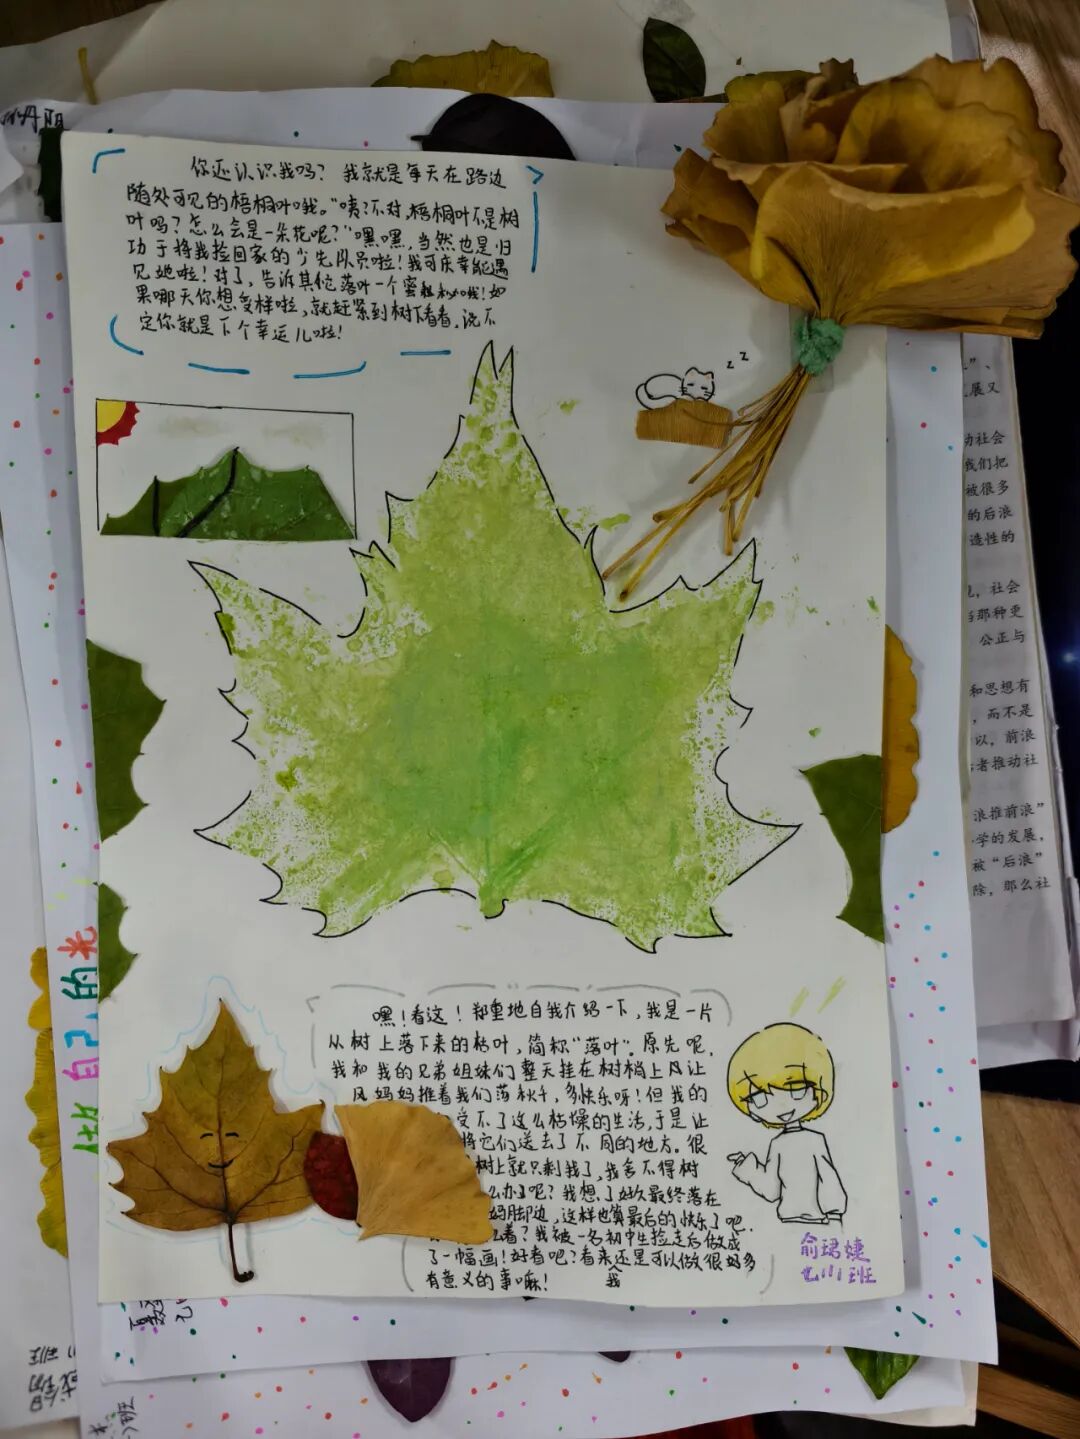 你还认识我吗？我就是每天在路边
随处可见的梧桐叶哦。“咦？不对，梧桐叶不是树
叶吗？怎么会是一朵花呢？”嘿嘿，当然也是归
功于将我捡回家的少先队员啦！我可庆幸能遇
见她啦！对了，告诉其他落叶一个蜜哦！如
果哪天你想变样啦，就赶紧到树下看看，说不
定你就是下个幸运儿啦！
z z
嘿！看这！郑重地自我介绍一下，我是一片
从树上落下来的枯叶，简称“落叶”。原先呢，
我和我的兄弟姐妹们整天挂在树梢上让
风妈妈推着我们荡秋千，多快乐呀！但我的
受不了这么枯燥的生活，于是让
将它们送去了不同的地方。很
树上就只剩我了，我舍不得树
么办了呢？我想了好久最终落在
妈脚边，这样也算最后的快乐了吧.
么着？我被一名初中生捡走后做成
了一幅画！好看吧？看来还是可以做很好多
有意义的事嘛！
我
俞珺婕
七(11)班
自己的光
班
”、
展又
动社会
我们把
被很多
的后浪
造性的
，社会
当那种更
公正与
和思想有
，而不是
以，前浪
者推动社
浪推前浪”
学的发展，
被“后浪”
除，那么社